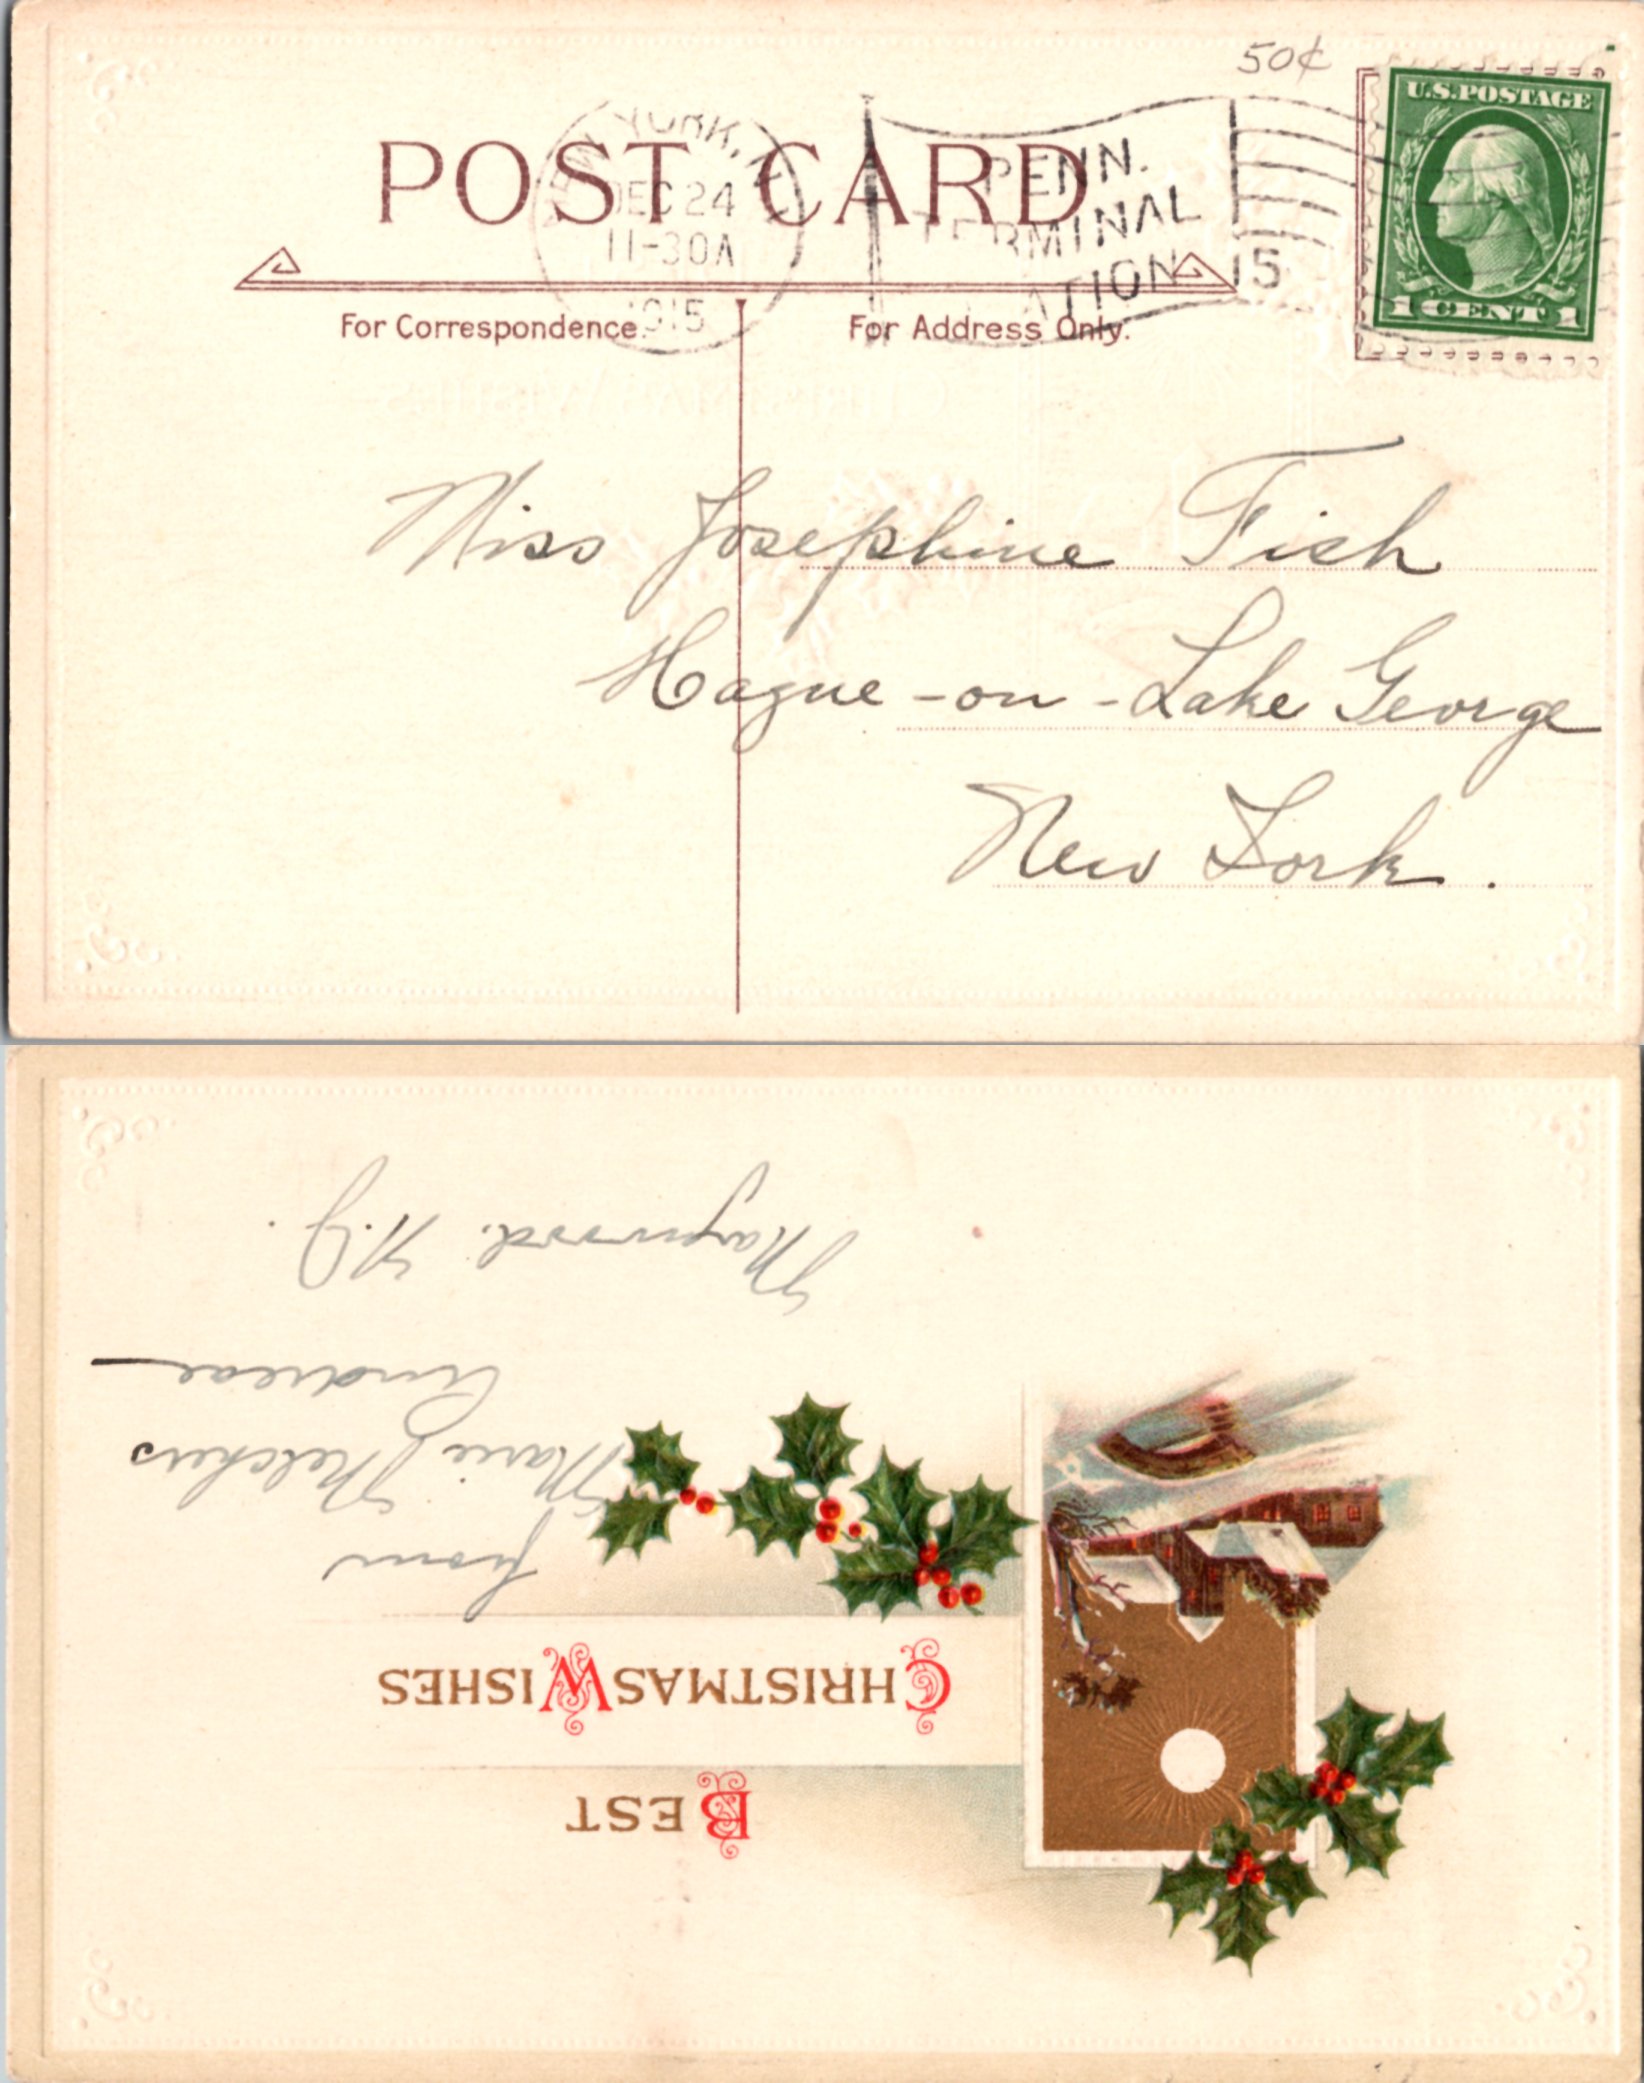 50¢
U.S. POSTAGE
1 CENT 1
NEW YORK, N.Y.
DEC 24
11-30A
1915
PENN.
TERMINAL
STATION 15
POST CARD
For Correspondence.
For Address Only.
Miss Josephine Fish
Hague-on-Lake George
New York.
BEST
CHRISTMAS WISHES
from
Marie Melchers
Andreae
Maywood. N.J.